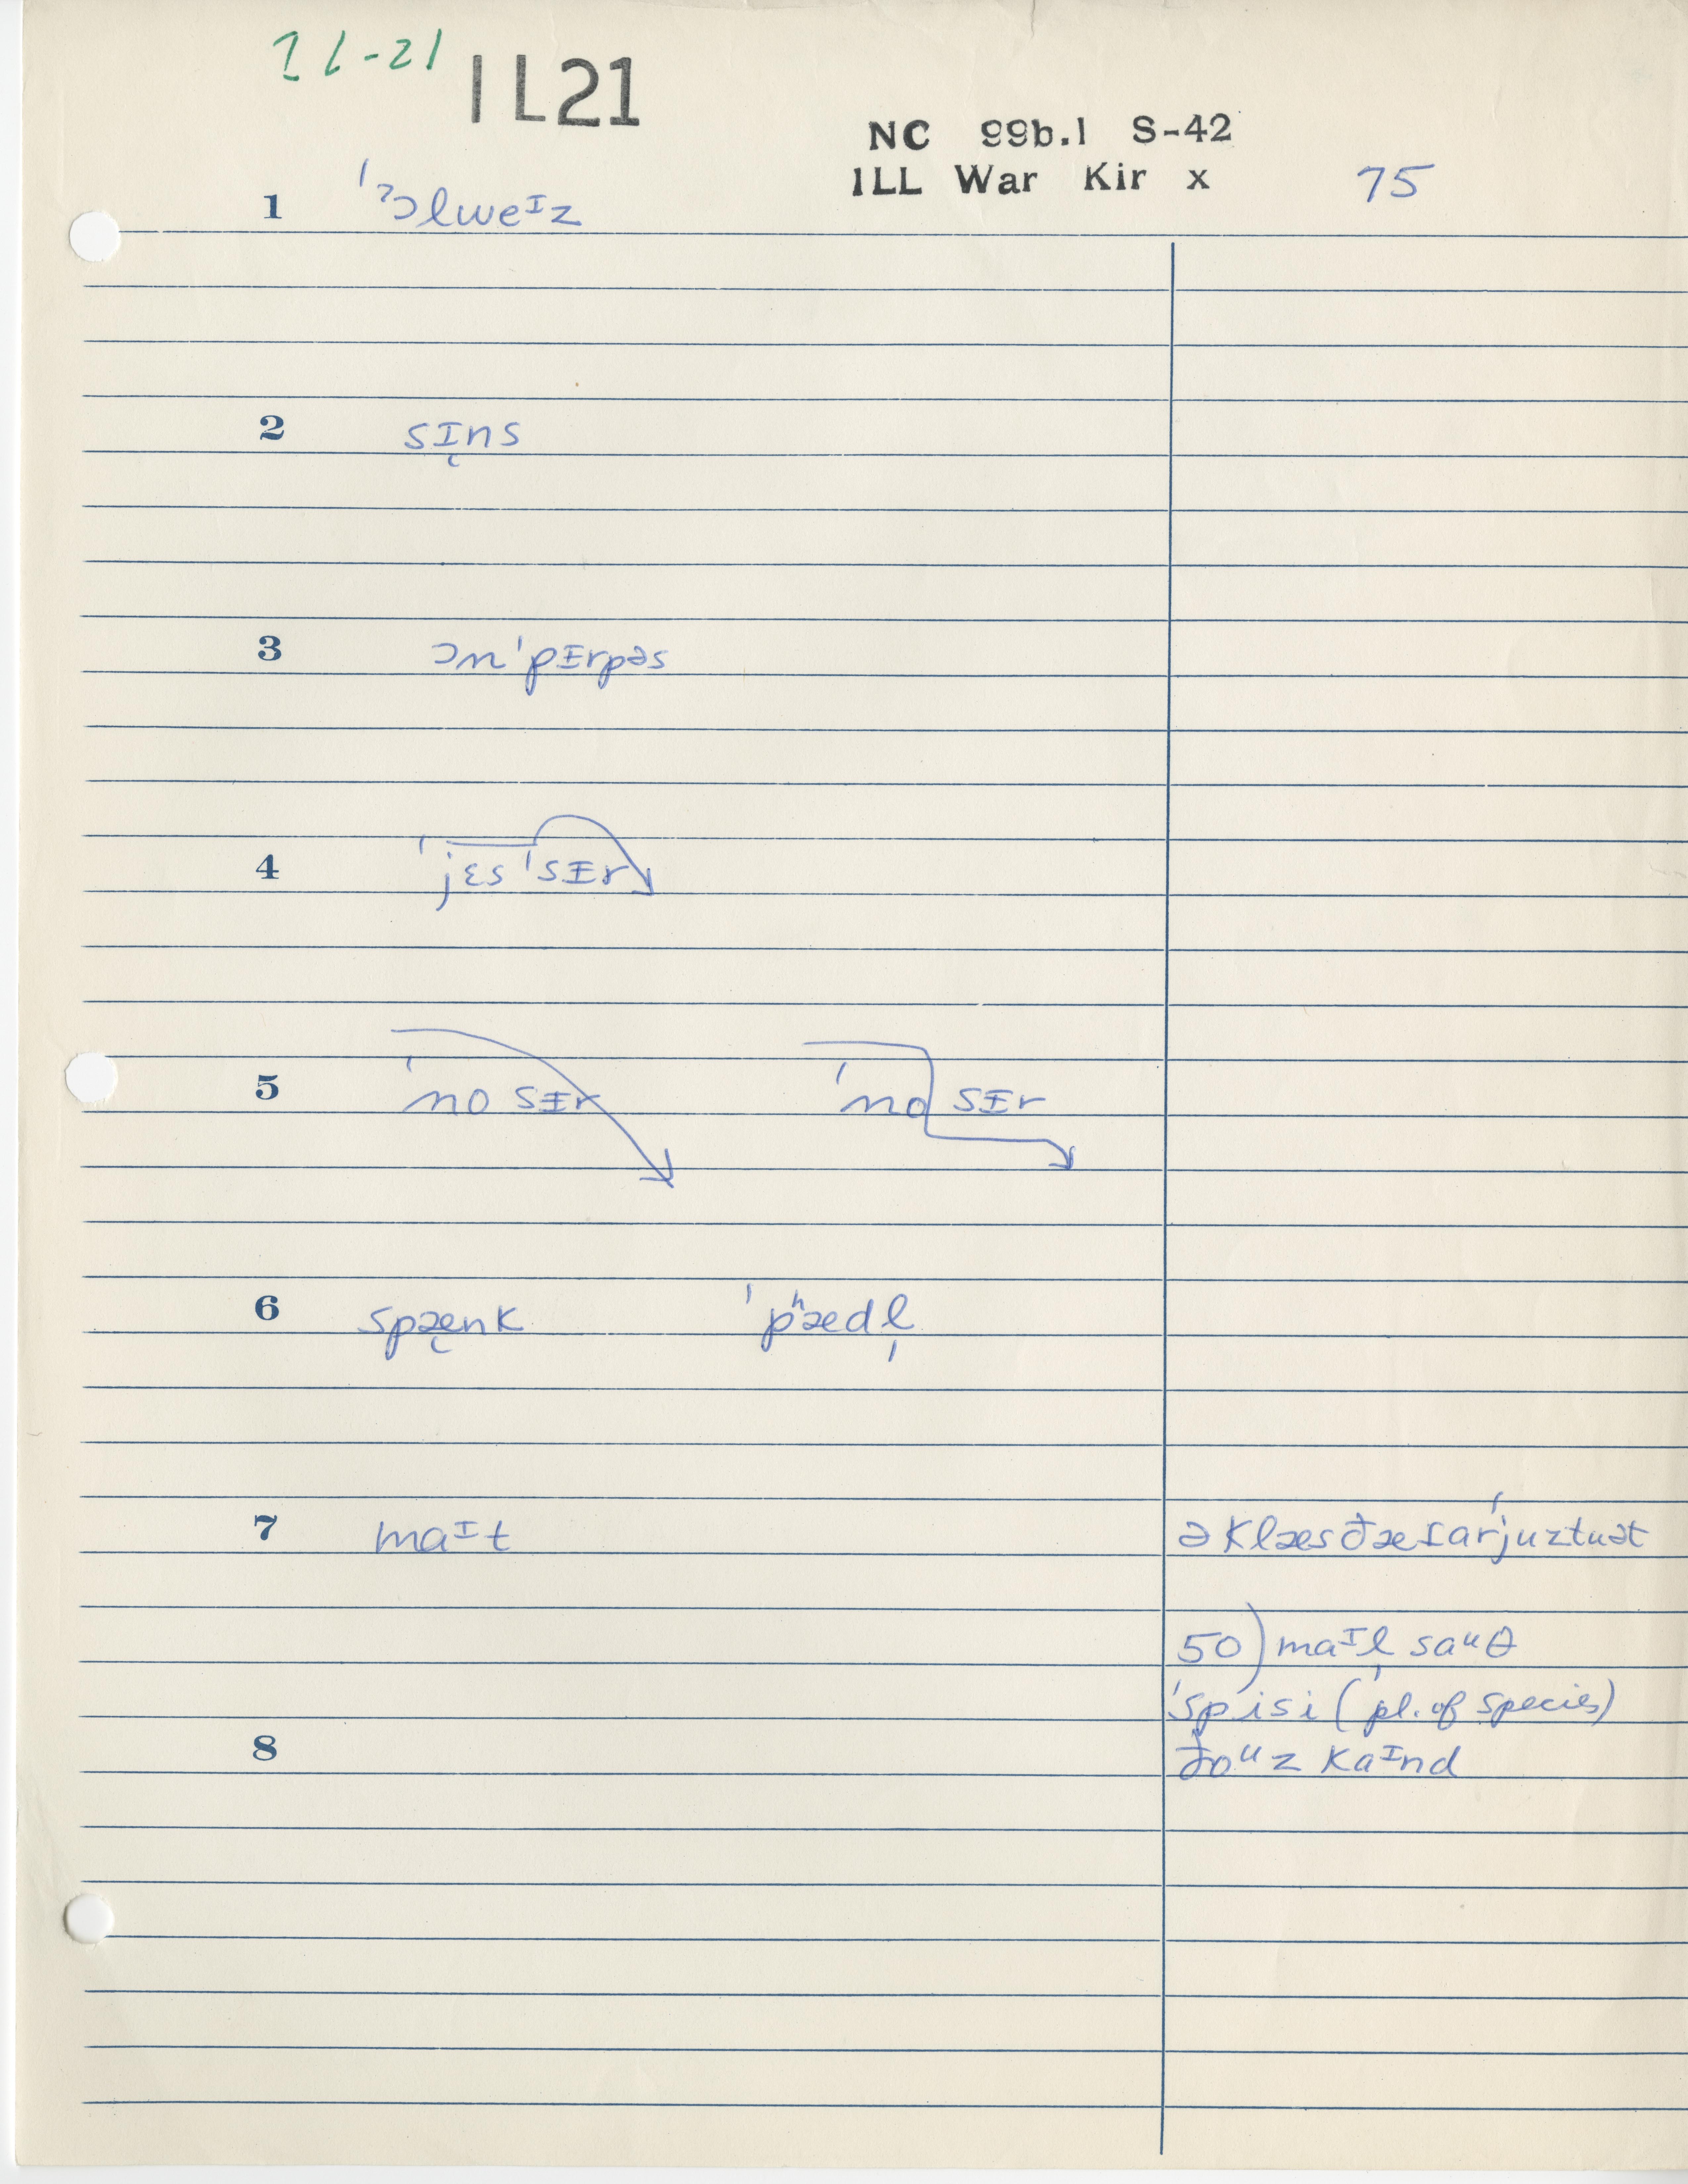 IL-21 IL21
NC 99b.1 S-42
ILL War Kir x 75
1 ˈˀɔlweᴵz
2 sɪ̜ns
3 ɔnˈpɪrpəs
4 ˈjɛs ˈsɪr
5 ˈno sɪr ˈno sɪr
6 spæ̜nk ˈpʰædl̩
7 maᴵt ə klæs ðæɪarˈjuztuət
50) maᴵl̩ saᵘθ
ˈspisi (pl. of species)
8 ðoᵘz kaᴵnd